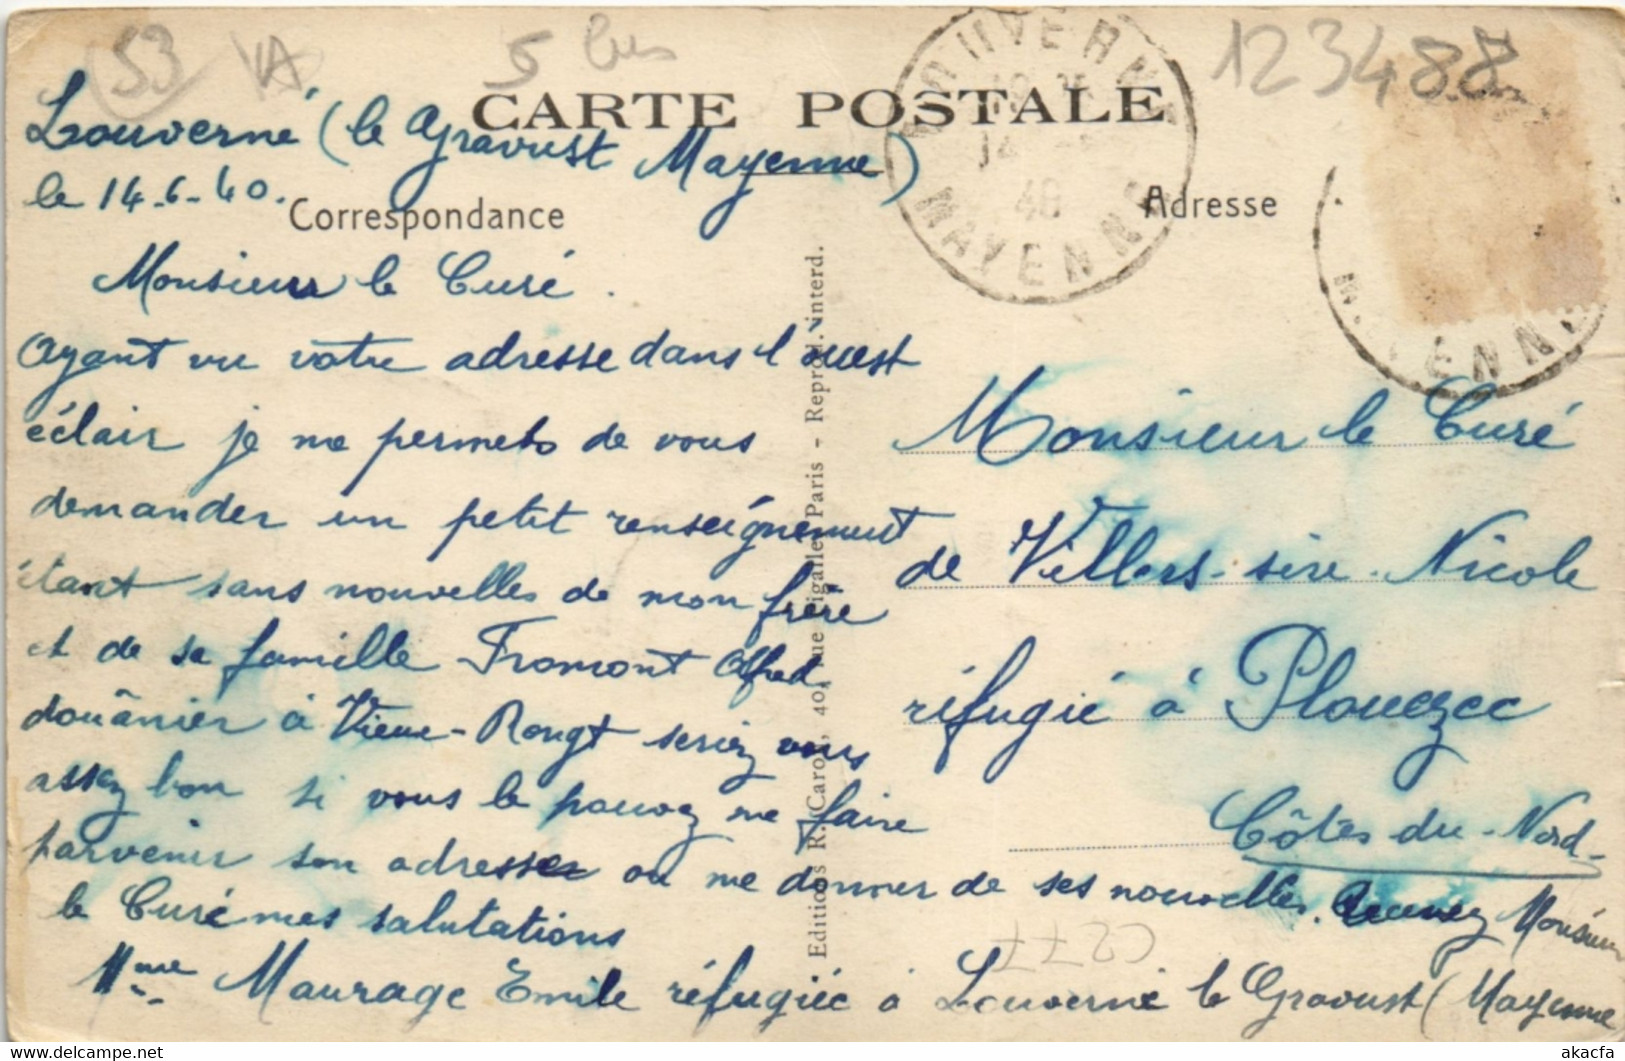 53
VA
5 bis
123488
CARTE POSTALE
Louverné (le Gravust Mayenne)
le 14-6-40.
Correspondance
Adresse
MAYENNE
40
Monsieur le Curé.
Ayant vu votre adresse dans l'ouest
éclair je me permets de vous
demander un petit renseignement
étant sans nouvelles de mon frère
et de sa famille Fromont Alfred
douânier à Vieux-Rengt seriez vous
assez bon si vous le pouvez me faire
parvenir son adresse ou me donner de ses nouvelles. Recevez Monsieur
le Curé mes salutations
Mme Maurage Emile réfugiée à Louverné le Gravust (Mayenne
Monsieur le Curé
de Villers-sire-Nicole
réfugié à Plouezec
Côtes du-Nord
Editions R. Caro, 40, rue Pigalle, Paris - Reprod. interd.
akacfa